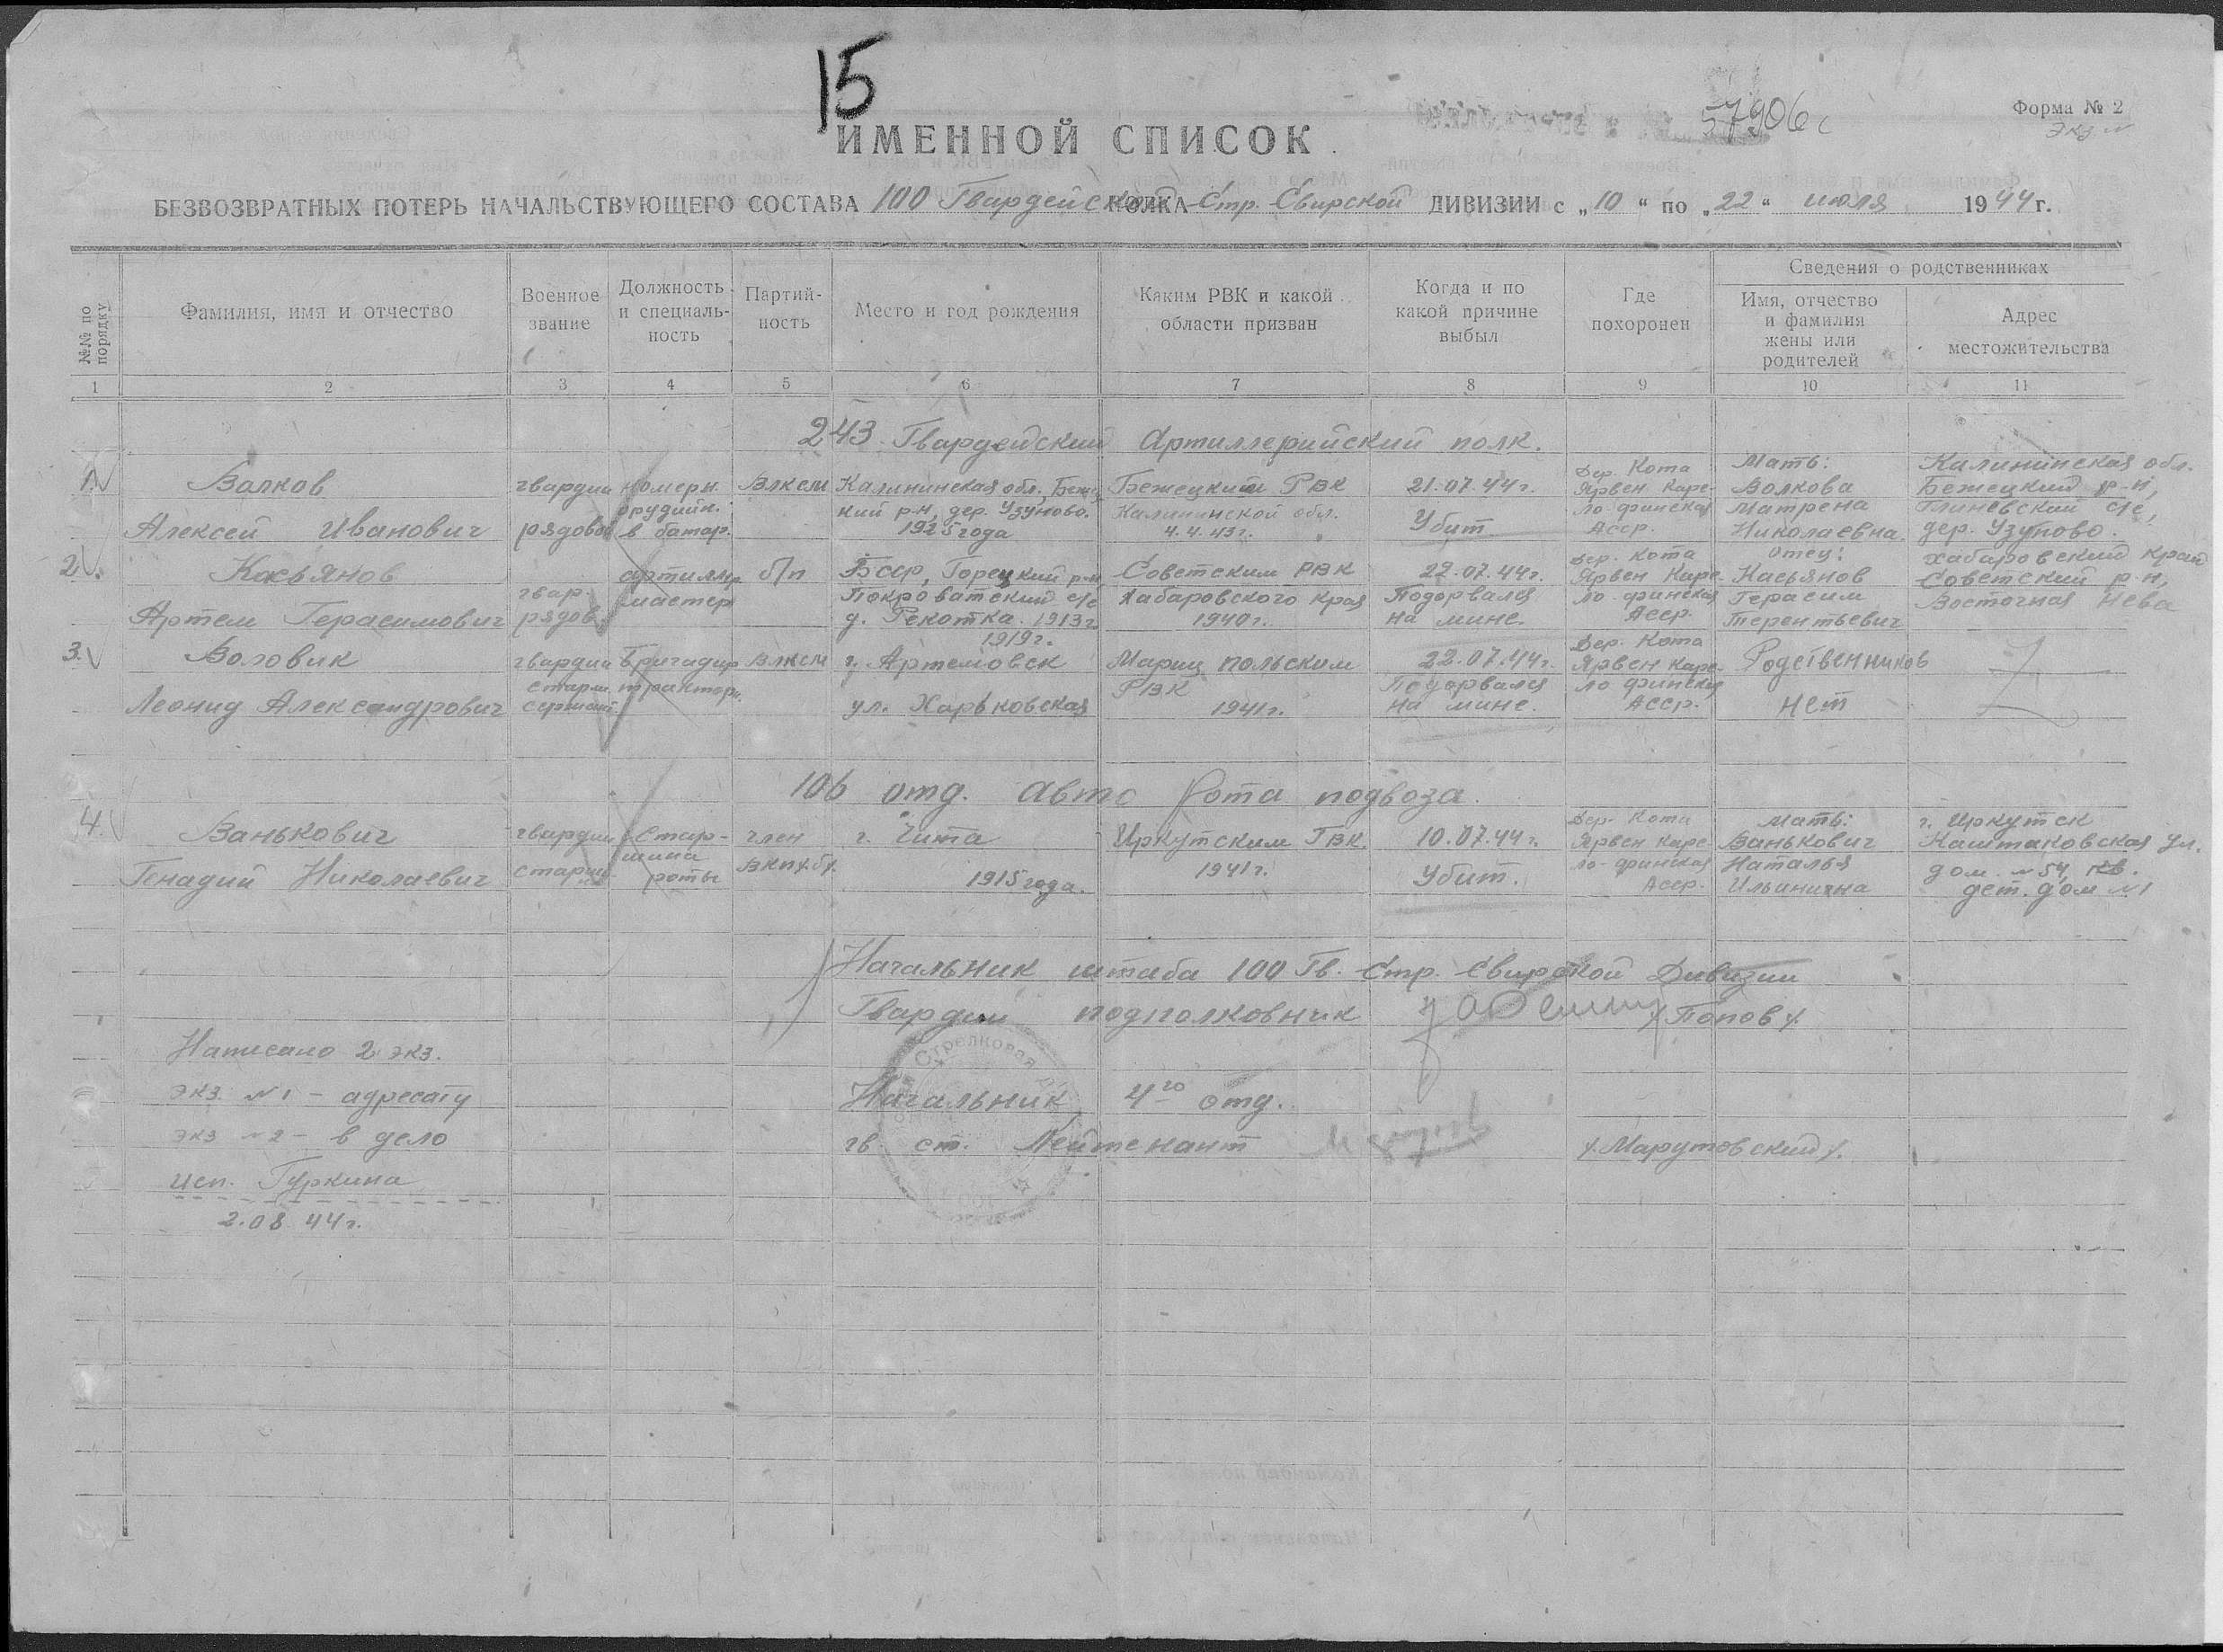 15
57906с
Форма № 2
Экз №
ИМЕННОЙ СПИСОК
БЕЗВОЗВРАТНЫХ ПОТЕРЬ НАЧАЛЬСТВУЮЩЕГО СОСТАВА 100 Гвардейской ПОЛКА Стр. Свирской ДИВИЗИИ с „10“ по „22“ июля 1944 г.
№№ по порядку
Фамилия, имя и отчество
Военное звание
Должность и специальность
Партийность
Место и год рождения
Каким РВК и какой области призван
Когда и по какой причине выбыл
Где похоронен
Сведения о родственниках
Имя, отчество и фамилия жены или родителей
Адрес местожительства
1 2 3 4 5 6 7 8 9 10 11
243 Гвардейский Артиллерийский полк.
1. Волков Алексей Иванович
гвардии рядовой
номерн. орудийн. в батар.
ВЛКСМ
Калининская обл., Бежецкий р-н, дер. Узуново. 1925 года
Бежецким РВК Калининской обл. 4.4.43г.
21.07.44г. Убит
Дер. Кота Ярвен Каре-ло-финская Асср.
Мать: Волкова Матрена Николаевна.
Калининская обл. Бежецкий р-н, Глиневский с/с, дер. Узуново.
2. Касьянов Артем Герасимович
гвар. рядов.
артиллер. мастер
б/п
БССР, Горецкий р-н Покроватский с/с д. Рекотка. 1913г.
Советским РВК Хабаровского края 1940г.
22.07.44г. Подорвался на мине.
Дер. Кота Ярвен Каре-ло-финская Асср.
Отец: Касьянов Герасим Терентьевич
Хабаровский край Советский р-н, Восточная Нева
3. Воловик Леонид Александрович
гвардии старш. сержант.
Бригадир трактори.
ВЛКСМ
1919г. г. Артемовск ул. Харьковская
Мариупольским РВК 1941г.
22.07.44г. Подорвался на мине.
Дер. Кота Ярвен Каре-ло финская Асср.
Родственников нет
106 отд. Авто Рота подвоза.
4. Ванькович Генадий Николаевич
гвардии старшина
Старшина роты
член ВКП/б/.
г. Чита 1915 года.
Иркутским ГВК. 1941г.
10.07.44г. Убит.
Дер. Кота Ярвен Каре-ло-финская Асср.
Мать: Ванькович Наталья Ильинична
г. Иркутск Каштаковская ул. дом. №54, кв. дет. дом №1
Начальник штаба 100 Гв. Стр. Свирской Дивизии
Гвардии подполковник /Попов/.
Написано 2 экз.
экз. №1 – адресату
экз №2 – в дело
исп. Гуркина
2.08.44г.
Стрелковая
Начальник 4го отд.
гв. ст. Лейтенант /.Марутовский/.